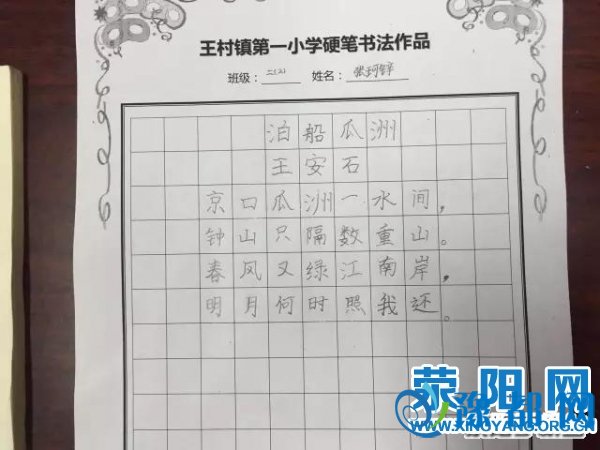 王村镇第一小学硬笔书法作品
班级：二(2) 姓名：张珂锌
泊船瓜洲
王安石
京口瓜洲一水间，
钟山只隔数重山。
春风又绿江南岸，
明月何时照我还。
荥阳网
豫都网
WWW.XINGYANG.ORG.CN